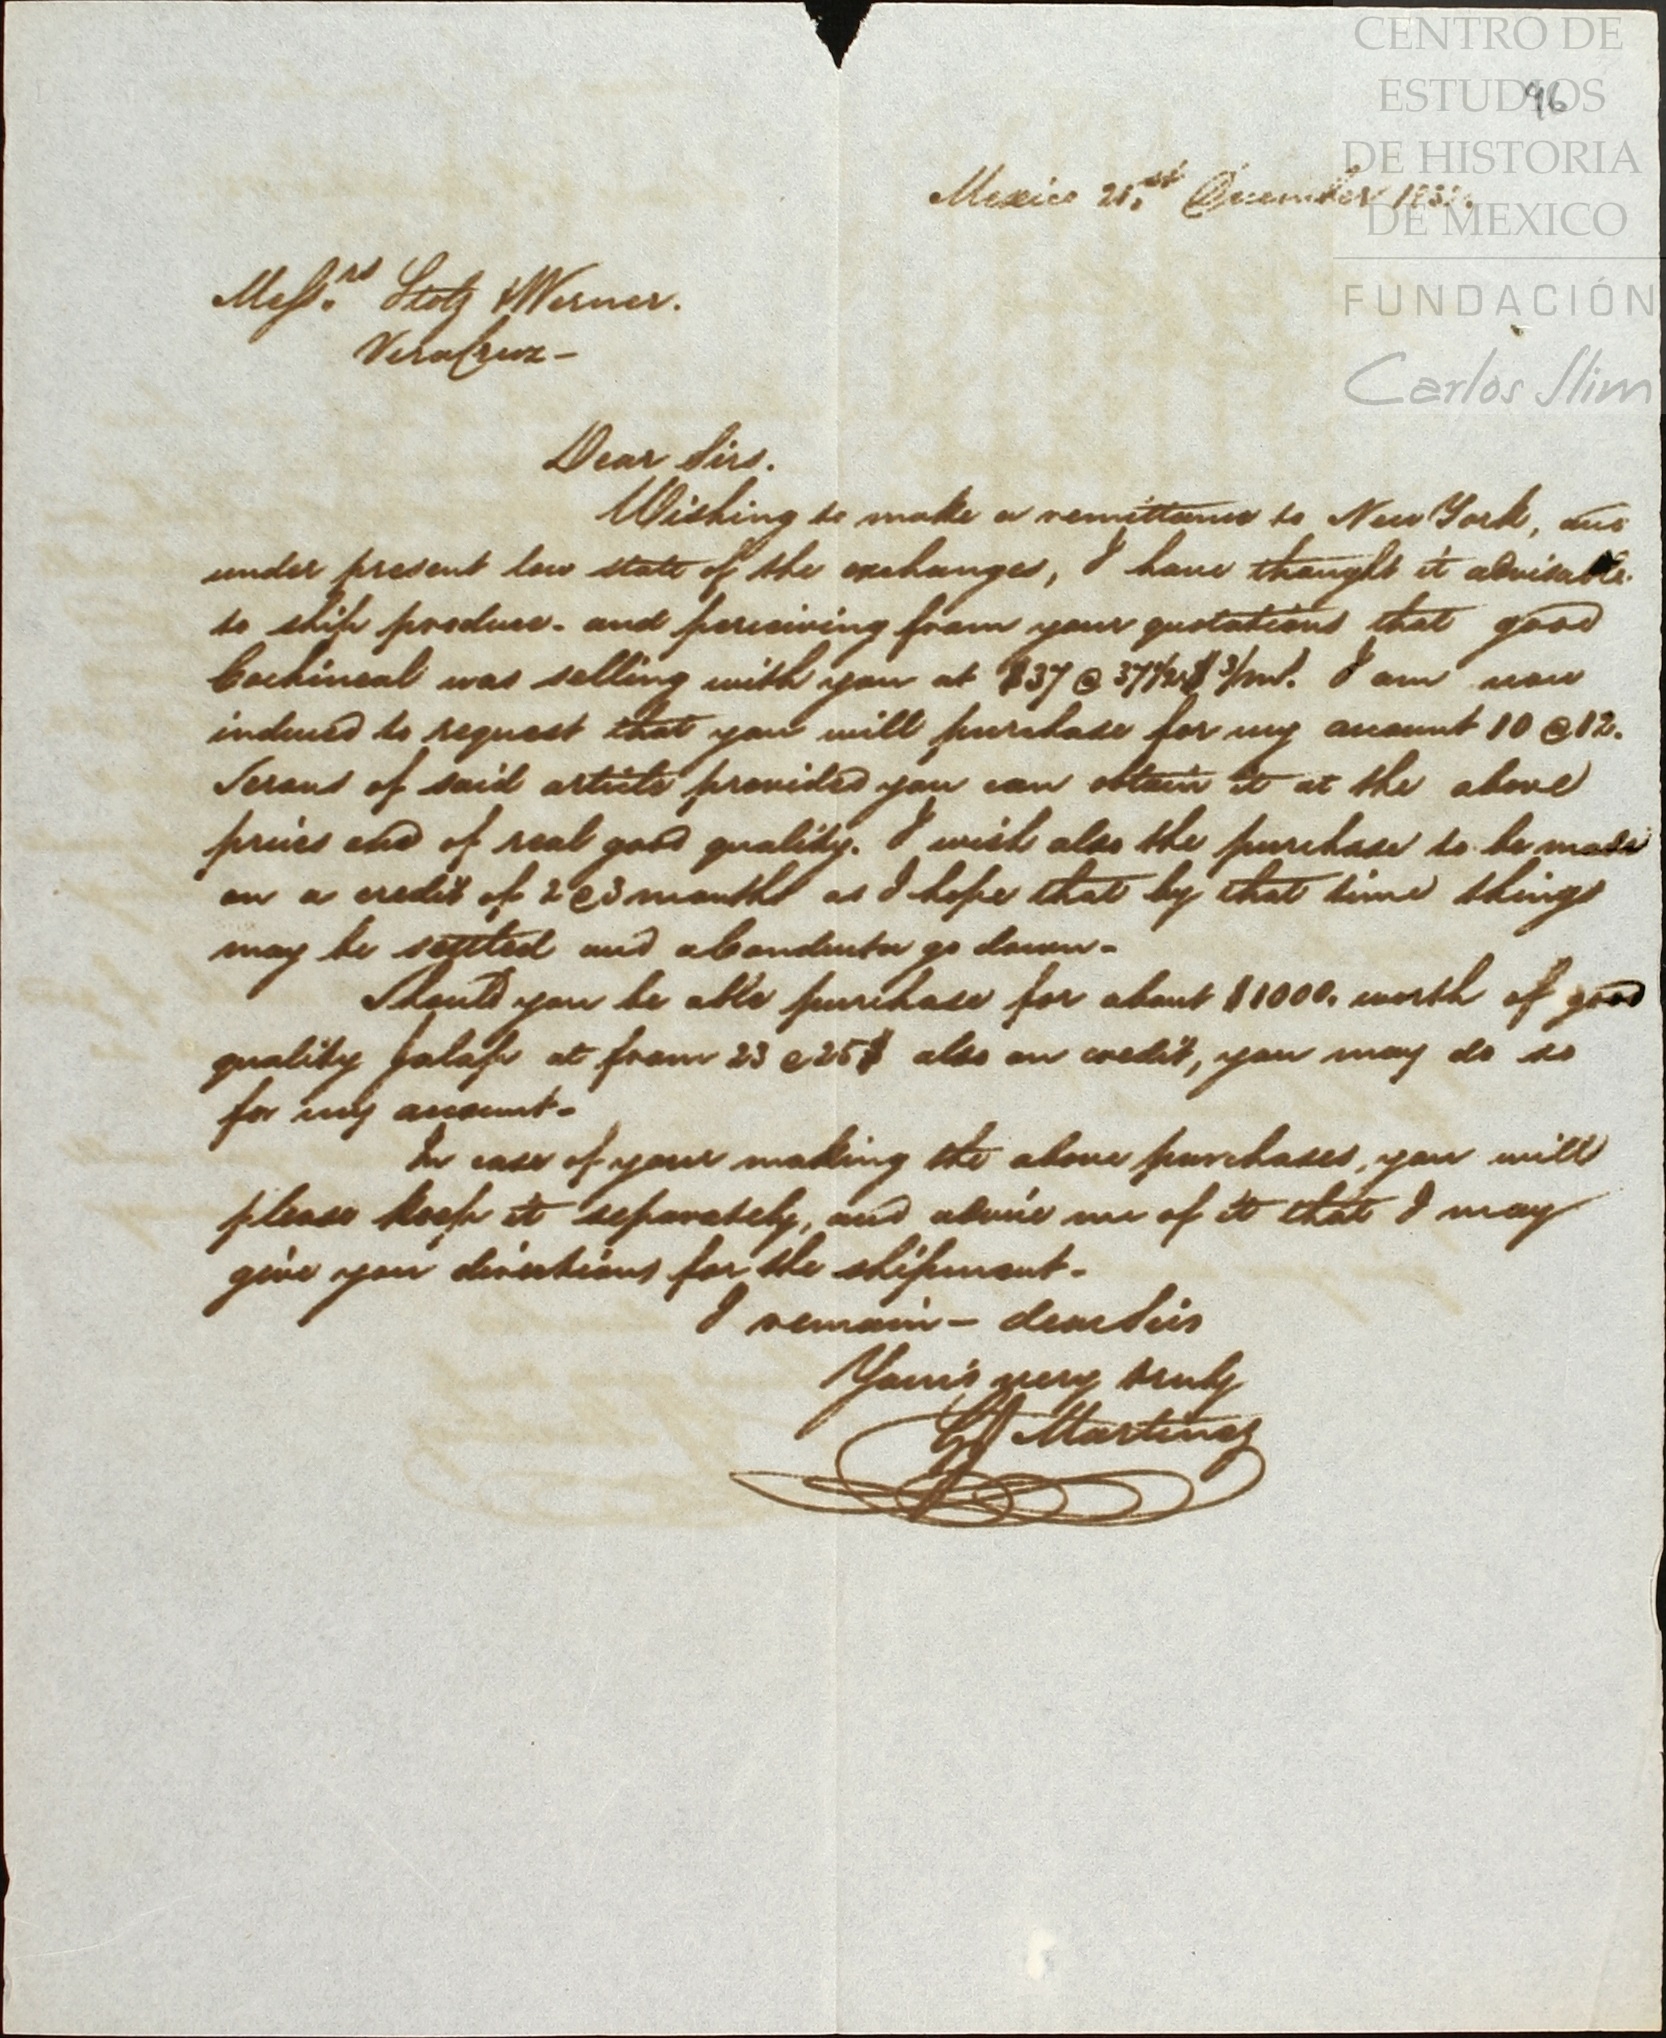 CENTRO DE
ESTUDIOS
DE HISTORIA
DE MEXICO
FUNDACIÓN
Carlos Slim
96
Mexico 21.st December
Mess.rs Stolz & Werner.
VeraCruz -
Dear Sirs.
Wishing to make a remittance to New York, and
under present low state of the exchanges, I have thought it advisable
to ship produce - and perceiving from your quotations that good
Cochineal was selling with you at $37 @ 37 1/2 $ I am now
induced to request that you will purchase for my account 10 @ 12.
Serons of said article provided you can obtain it at the above
prices and of real good quality. I wish also the purchase to be made
on a credit of 2 @ 3 months as I hope that by that time things
may be settled and a Conducta go down -
Should you be able purchase for about $1000. worth of good
quality Jalap at from 23 @ 25$ also on credit, you may do so
for my account -
In case of your making the above purchases, you will
please keep it separately, and advise me of it that I may
give you directions for the shipment -
I remain - dear Sirs
Yours very truly
Martinez